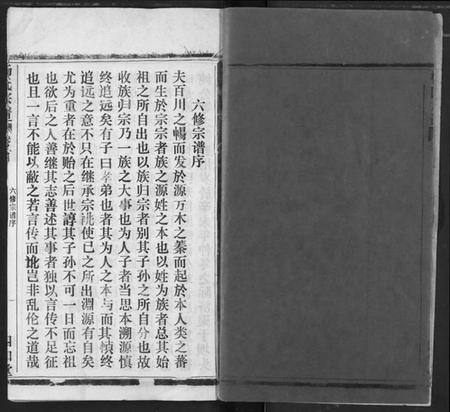 六修宗谱序
夫百川之暢而发於源万木之蓁而起於本人类之蕃
而生於宗宗者族之源姓之本也以姓为族者总其始
祖之所自出也以族归宗者别其子孙之所自分也故
收族归宗乃一族之大事也为人子者当思本溯源慎
终追远矣有子曰孝弟也者其为人之本与而其慎终
追远之意不只在继承宗祧使已之所出渊源有自矣
尤为重者在於贻之后世諄其子孙不可一日而忘祖
也欲后之人善继其志善述其事者独以言传不足征
也且一言不能以蔽之若言传而讹岂非乱伦之道哉
六修宗谱序